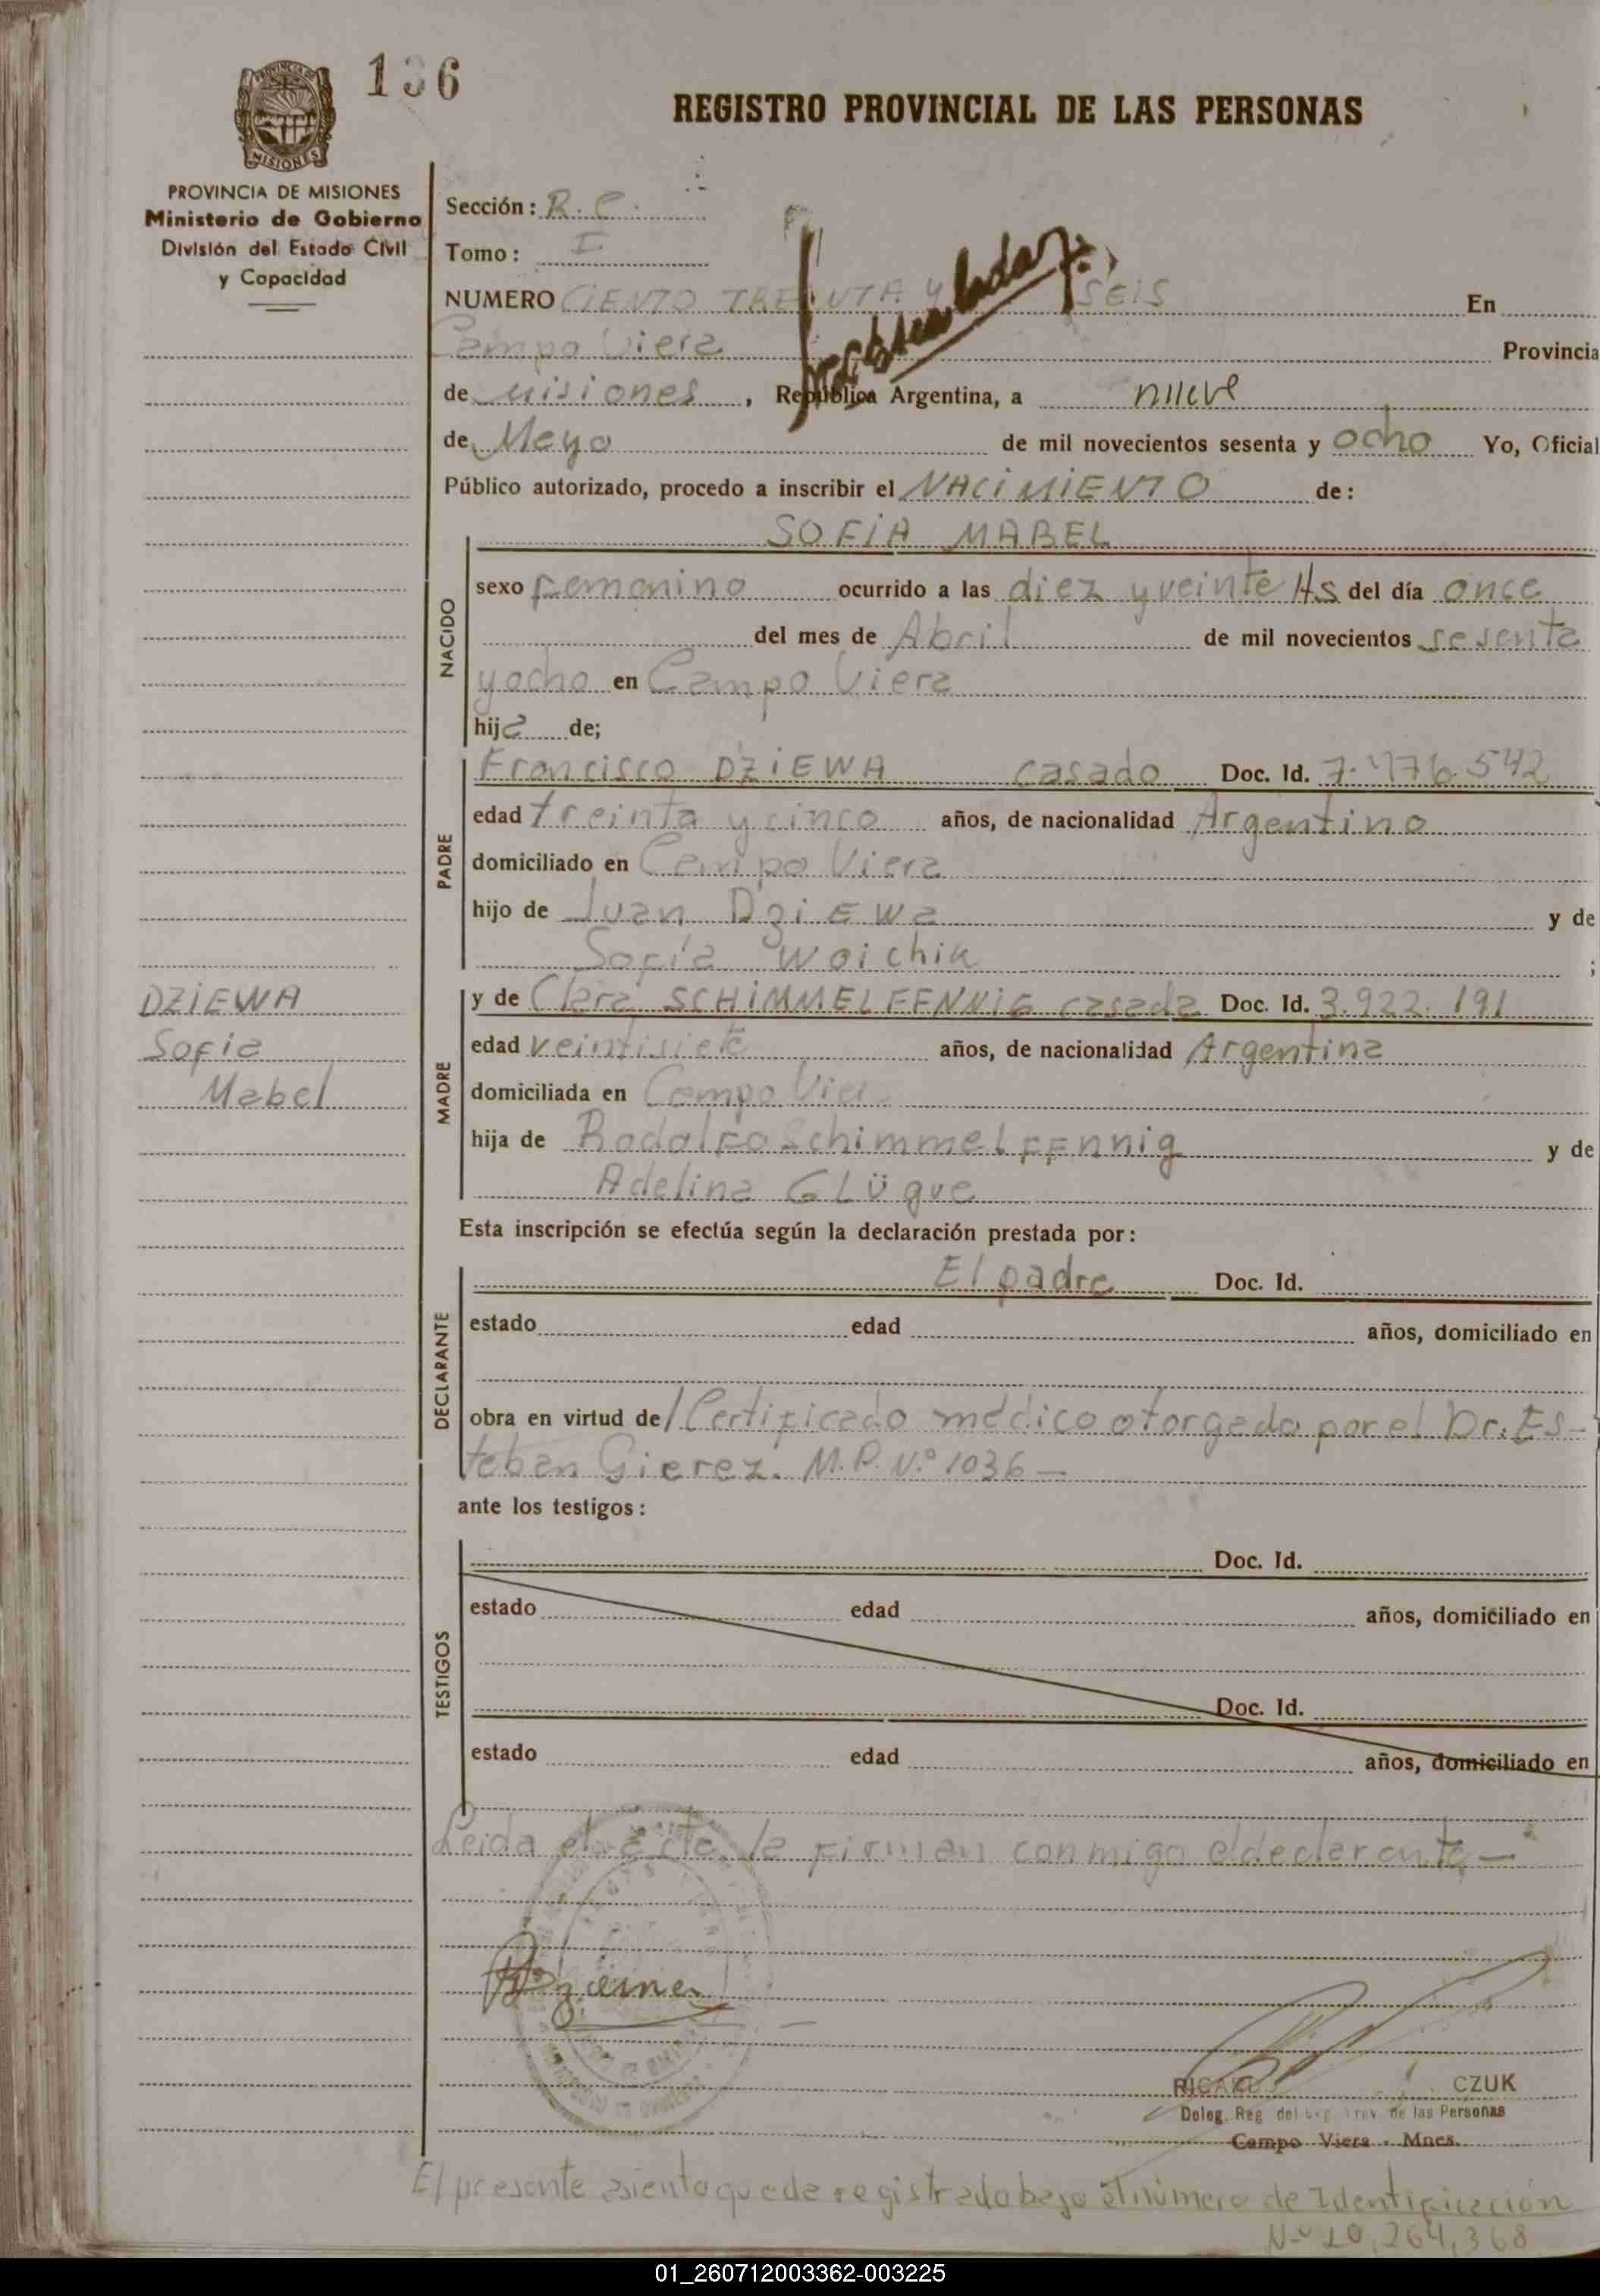 136
REGISTRO PROVINCIAL DE LAS PERSONAS
MISIONES
PROVINCIA DE MISIONES
Ministerio de Gobierno
División del Estado Civil
y Capacidad
Sección: R. C.
Tomo: I
NUMERO CIENTO TREINTA Y SEIS En
Campo Viera Provincia
de Misiones, República Argentina, a nueve
de Mayo de mil novecientos sesenta y ocho Yo, Oficial
Público autorizado, procedo a inscribir el NACIMIENTO de:
SOFIA MABEL
NACIDO
sexo femenino ocurrido a las diez y veinte Hs del día once
del mes de Abril de mil novecientos sesenta
y ocho en Campo Viera
hija de;
PADRE
Francisco DZIEWA casado Doc. Id. 7.476.542
edad treinta y cinco años, de nacionalidad Argentino
domiciliado en Campo Viera
hijo de Juan DziEWa y de
Sofía Woichik ;
DZIEWA
Sofia
Mabel
MADRE
y de Clara SCHIMMELFENNIG casada Doc. Id. 3.922.191
edad veintisiete años, de nacionalidad Argentina
domiciliada en Campo Viera
hija de Rodolfo Schimmelffennig y de
Adelina GLügue
Esta inscripción se efectúa según la declaración prestada por:
DECLARANTE
El padre Doc. Id.
estado edad años, domiciliado en
obra en virtud de/ Certificado médico otorgado por el Dr. Es-
teban Gierez. M.P. N.º 1036 —
ante los testigos:
TESTIGOS
Doc. Id.
estado edad años, domiciliado en
Doc. Id.
estado edad años, domiciliado en
Leida el acta la firman conmigo el declarante —
RICARDO CZUK
Deleg. Reg. del Reg. Prov. de las Personas
Campo Viera - Mnes.
El presente asiento queda registrado bajo el número de Identificación
N-º 20,264,368
01_260712003362-003225